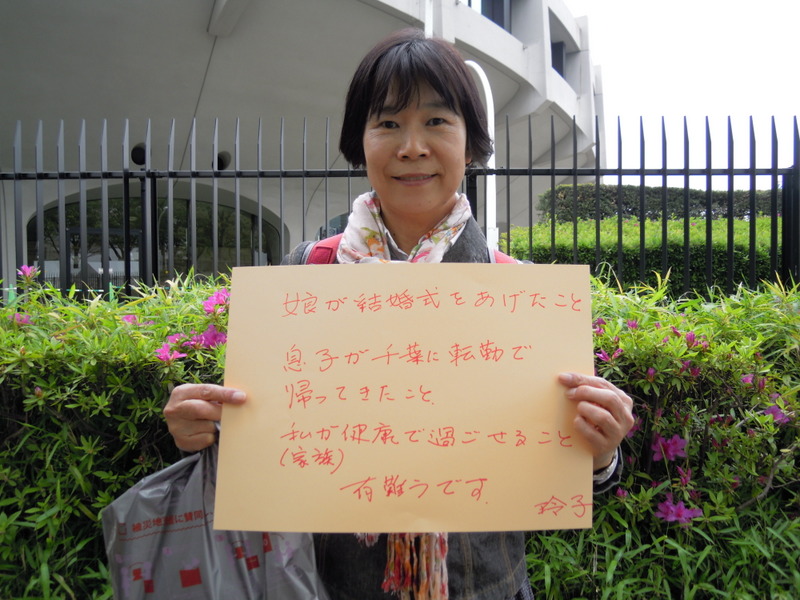 娘が結婚式をあげたこと
息子が千葉に転勤で
帰ってきたこと.
私が健康で過ごせること
(家族)
有難うです.
玲子
被災地
に賛同